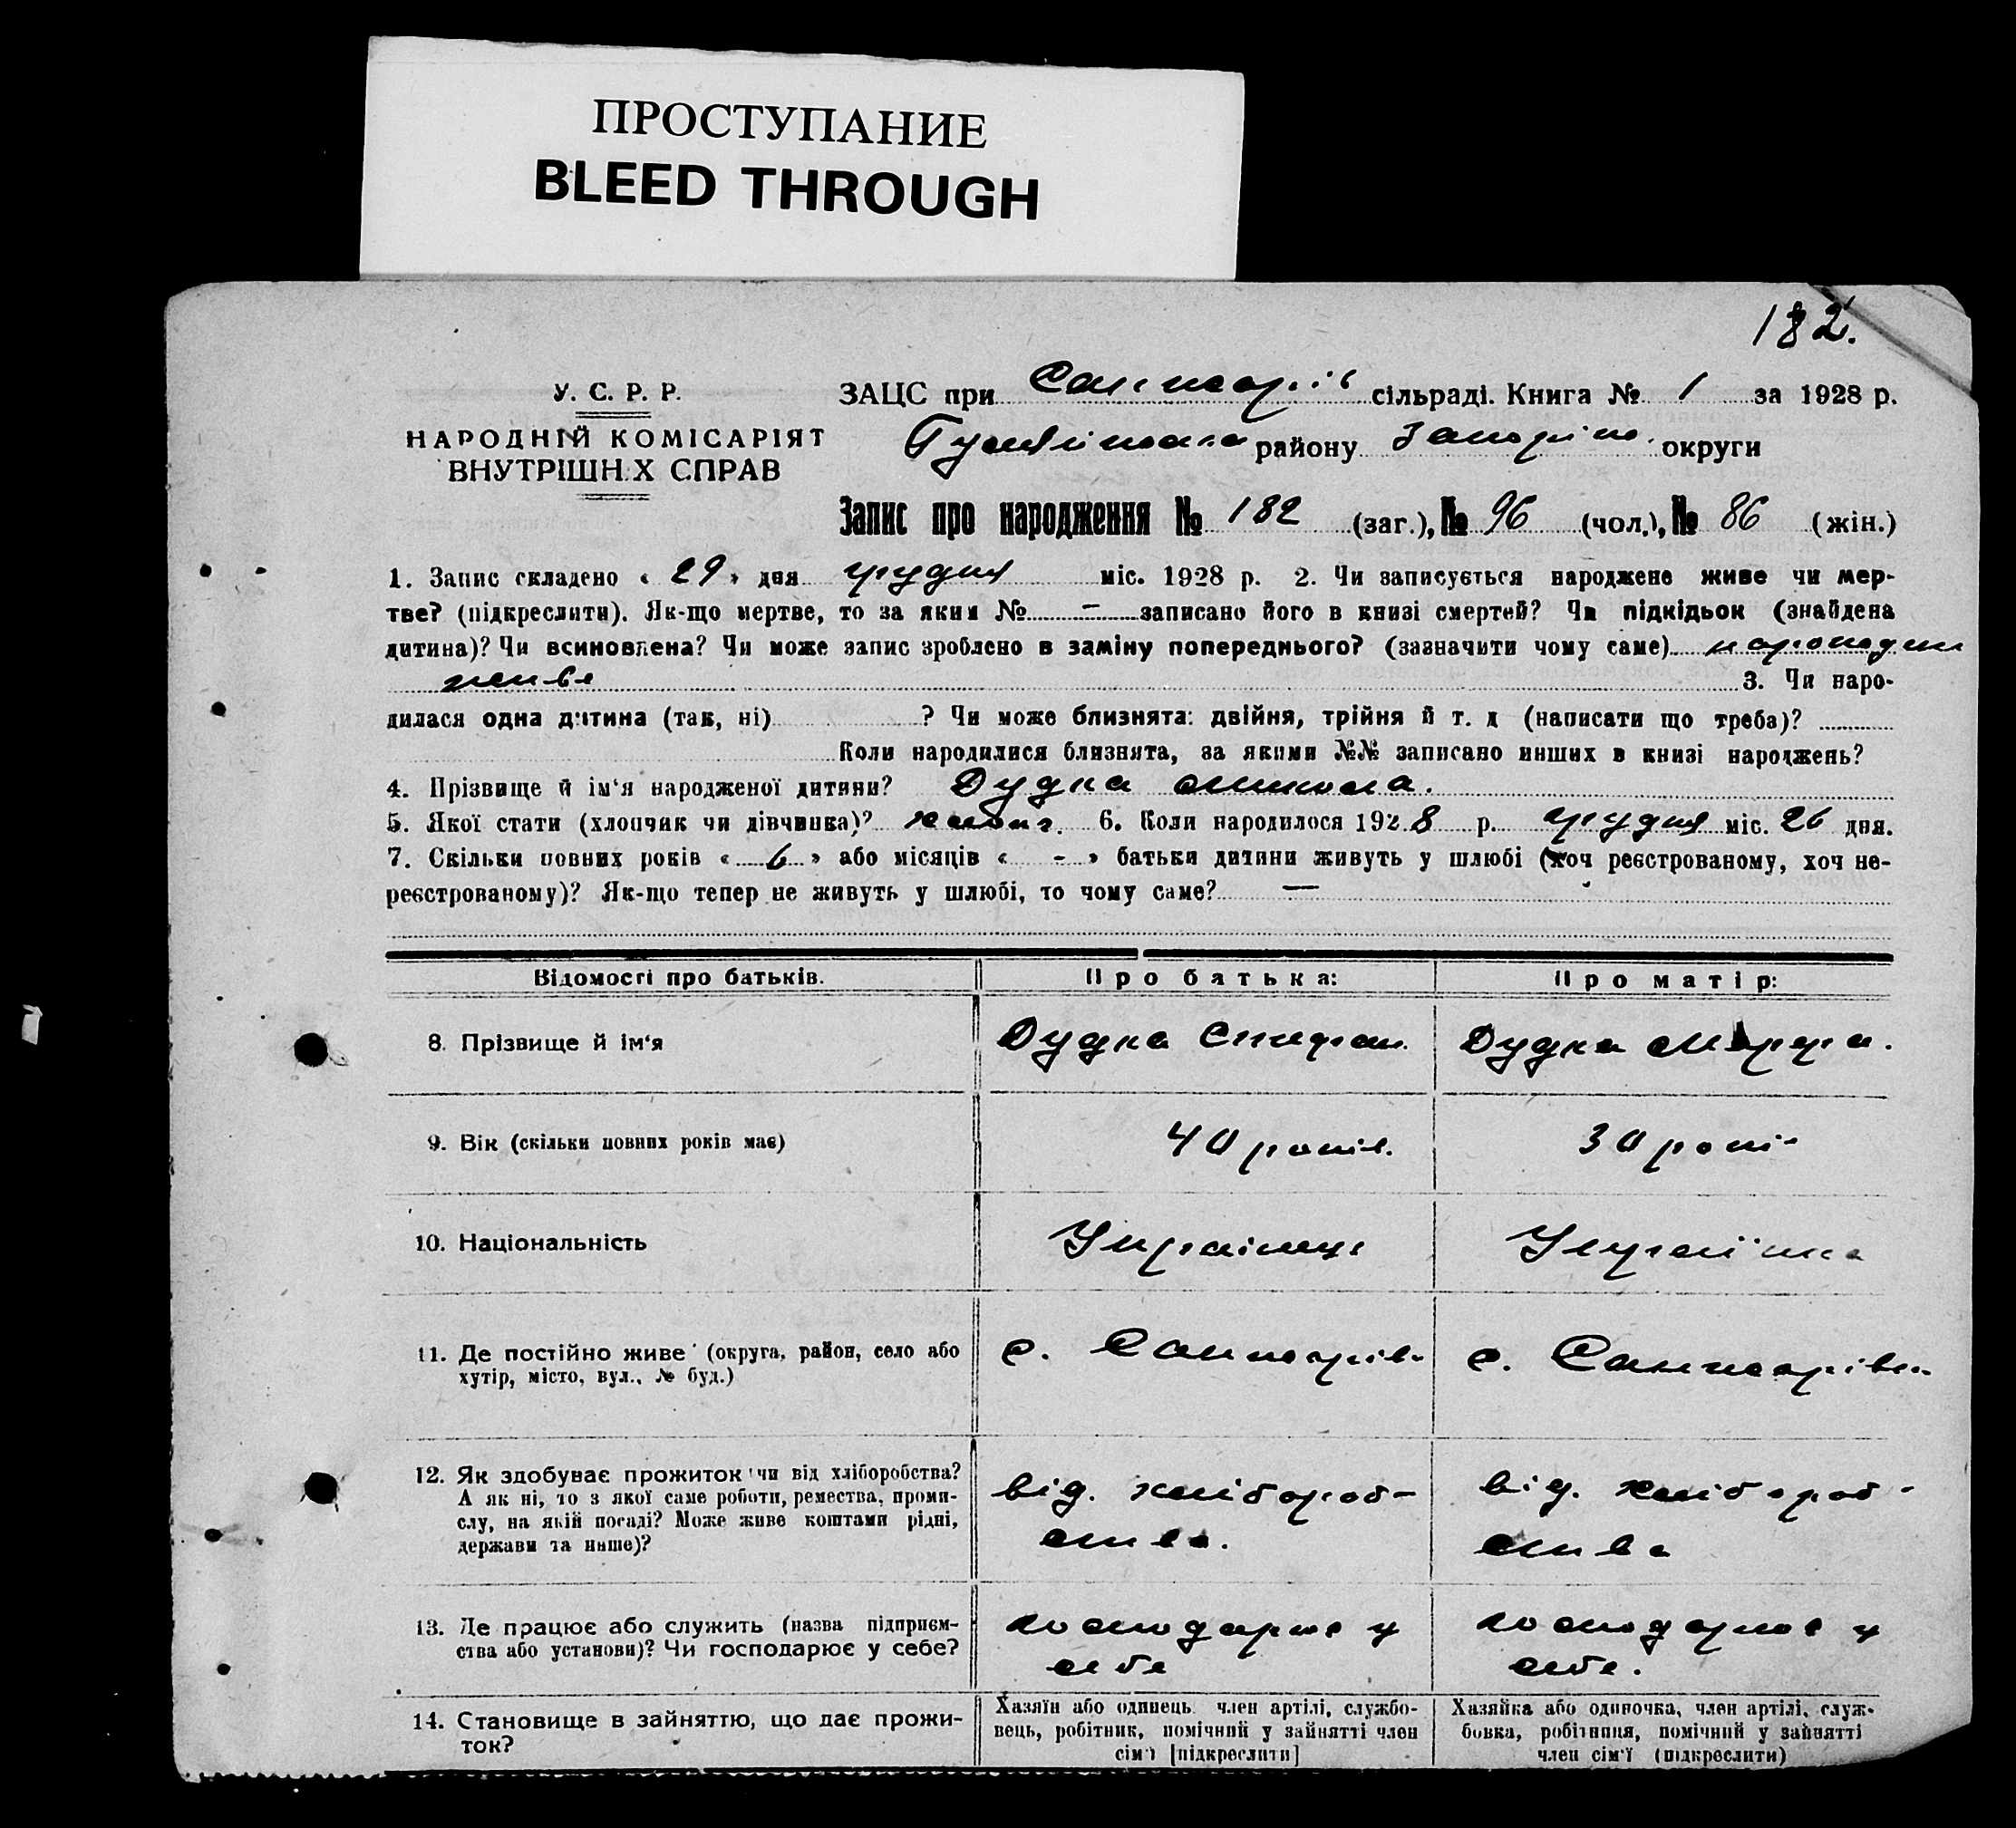 ПРОСТУПАНИЕ
BLEED THROUGH
182.
У. С. Р. Р.
НАРОДНІЙ КОМІСАРІЯТ
ВНУТРІШНІХ СПРАВ
ЗАЦС при Санжарів сільраді. Книга № 1 за 1928 р.
району Запоріж. округи
Запис про народження № 182 (заг.), № 96 (чол.), № 86 (жін.)
1. Запис складено « 29 » дня грудня міс. 1928 р. 2. Чи записується народжене живе чи мер-
тве? (підкреслити). Як-що мертве, то за яким № — записано його в книзі смертей? Чи підкідьок (знайдена
дитина)? Чи всиновлена? Чи може запис зроблено в заміну попереднього? (зазначити чому саме)
живе 3. Чи наро-
дилася одна дитина (так, ні) ? Чи може близнята: двійня, трійня й т. д (написати що треба)?
Коли народилися близнята, за якими №№ записано инших в книзі народжень?
4. Прізвище й ім'я народженої дитини? Дудка Микола.
5. Якої стати (хлопчик чи дівчинка)? хлопч. 6. Коли народилося 1928 р. грудня міс. 26 дня.
7. Скільки повних років « 6 » або місяців « - » батьки дитини живуть у шлюбі (хоч реєстрованому, хоч не-
реєстрованому)? Як-що тепер не живуть у шлюбі, то чому саме? —
Відомості про батьків. Про батька: Про матір:
8. Прізвище й ім'я Дудка Стефан. Дудка Марфа.
9. Вік (скільки повних років має) 40 років. 30 рокі
10. Національність Українець Українка
11. Де постійно живе (округа, район, село або
хутір, місто, вул., № буд.) с. Санжарів с. Санжарівка
12. Як здобуває прожиток чи від хліборобства?
А як ні, то з якої саме роботи, ремества, проми-
слу, на якій посаді? Може живе коштами рідні,
держави та инше)? від. хлібороб- від. хлібороб-
ства. ства
13. Де працює або служить (назва підприєм-
ства або установи)? Чи господарює у себе? господарює у господарює у
себе себе.
14. Становище в зайняттю, що дає прожи-
ток?
Хазяїн або одинець член артілі, службо-
вець, робітник, помічний у зайнятті член
сім'ї [підкреслити]
Хазяйка або одиночка, член артілі, служ-
бовка, робітниця, помічний у зайнятті
член сім'ї (підкреслити)